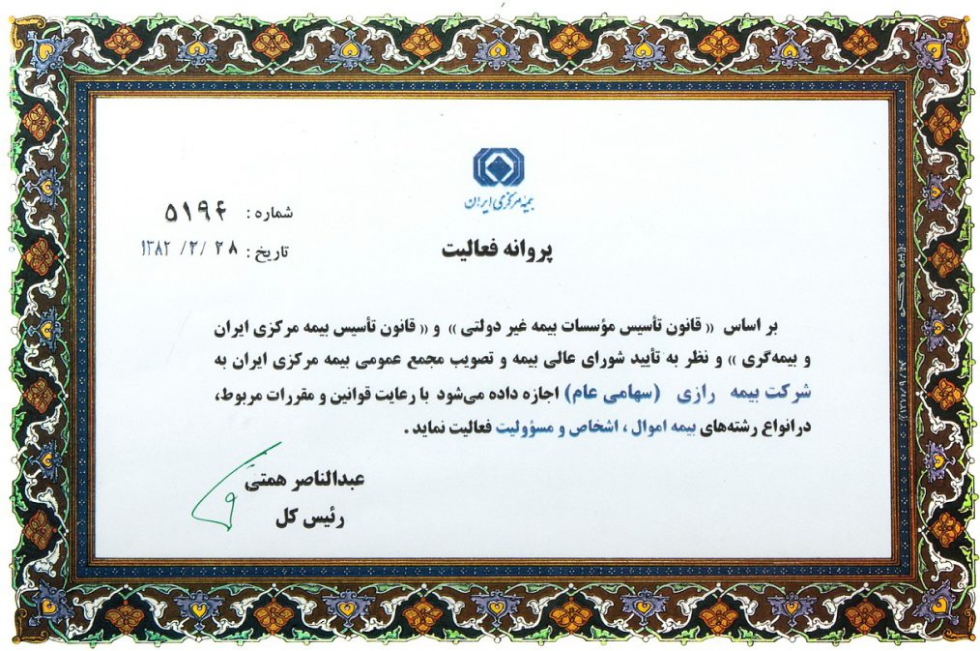 بیمه مرکزی ایران
شماره : ۵۱۹۴
تاریخ : ۱۳۸۲ /۲/ ۲۸
پروانه فعالیت
بر اساس « قانون تأسیس مؤسسات بیمه غیر دولتی » و « قانون تأسیس بیمه مرکزی ایران
و بیمه‌گری » و نظر به تأیید شورای عالی بیمه و تصویب مجمع عمومی بیمه مرکزی ایران به
شرکت بیمه رازی (سهامی عام) اجازه داده می‌شود با رعایت قوانین و مقررات مربوط،
درانواع رشته‌های بیمه اموال ، اشخاص و مسؤولیت فعالیت نماید .
عبدالناصر همتی
رئیس کل